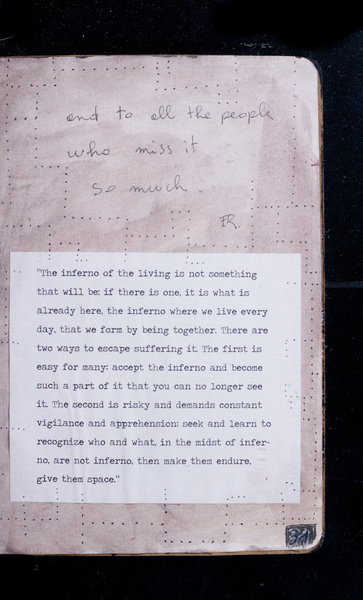 and to all the people
who miss it
so much.
FR.
"The inferno of the living is not something
that will be; if there is one, it is what is
already here, the inferno where we live every
day, that we form by being together. There are
two ways to escape suffering it. The first is
easy for many: accept the inferno and become
such a part of it that you can no longer see
it. The second is risky and demands constant
vigilance and apprehension: seek and learn to
recognize who and what, in the midst of infer-
no, are not inferno, then make them endure,
give them space."